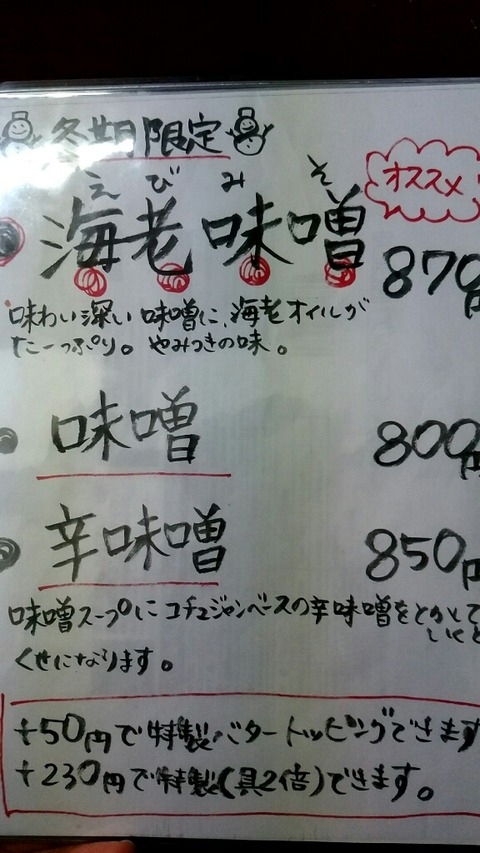 冬期限定
えびみそ
オススメ
海老味噌 870円
味わい深い味噌に、海老オイルが
たーっぷり。やみつきの味。
味噌 800円
辛味噌 850円
味噌スープにコチュジャンベースの辛味噌をとかして
いくと
くせになります。
+50円で特製バタートッピングできます
+230円で特製(具2倍)できます。